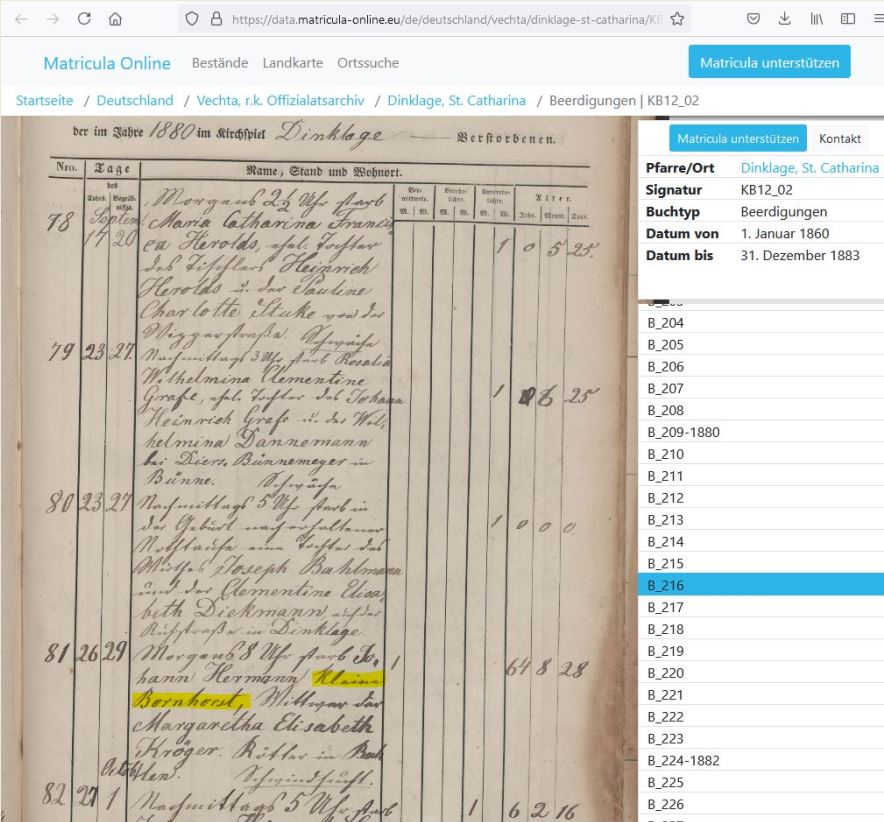 https://data.matricula-online.eu/de/deutschland/vechta/dinklage-st-catharina/KB
Matricula Online
Bestände
Landkarte
Ortssuche
Matricula unterstützen
Startseite / Deutschland / Vechta, r.k. Offizialatsarchiv / Dinklage, St. Catharina / Beerdigungen | KB12_02
der im Jahre 1880 im Kirchspiel Dinklage Verstorbenen.
Nro. Tage Name, Stand und Wohnort.
des
Todes. Alter.
M. W. M. W. M. W. Jahr. Monat. Tage.
Morgens 2½ Uhr starb
78 Septem Maria Catharina Francis
17 20 ca Herolds, ehel. Tochter 1 0 5 25.
des Tischlers Heinrich
Herolds u. der Pauline
Charlotte Stuke von der
Wiggerstraße. Schwäche
79 23 27. Nachmittags 3 Uhr starb Rosalia
Wilhelmina Clementine
Grafe, ehel. Tochter des Johann 1 6 25
Heinrich Grafe u. der Wil-
helmina Dannemann
bei Diers. Bünnemeyer in
Bünne. Schwäche
80 23 27 Nachmittags 5 Uhr starb in
der Geburt nach erhaltener 1 0 0 0
Nothtaufe eine Tochter des
Wirthes Joseph Bahlmann
und der Clementine Elisa-
beth Diekmann, auf der
in Dinklage.
81 26 29 Morgens 8 Uhr starb Jo- 1
hann Hermann Kleine 64 8 28
Bornhorst, Wittwer der
Margaretha Elisabeth
Kröger. Kötter in Bah
Octob len. Schwindsucht.
82 27 1 Nachmittags 5 Uhr starb 1 6 2 16
Matricula unterstützen
Kontakt
Pfarre/Ort Dinklage, St. Catharina
Signatur KB12_02
Buchtyp Beerdigungen
Datum von 1. Januar 1860
Datum bis 31. Dezember 1883
B_204
B_205
B_206
B_207
B_208
B_209-1880
B_210
B_211
B_212
B_213
B_214
B_215
B_216
B_217
B_218
B_219
B_220
B_221
B_222
B_223
B_224-1882
B_225
B_226